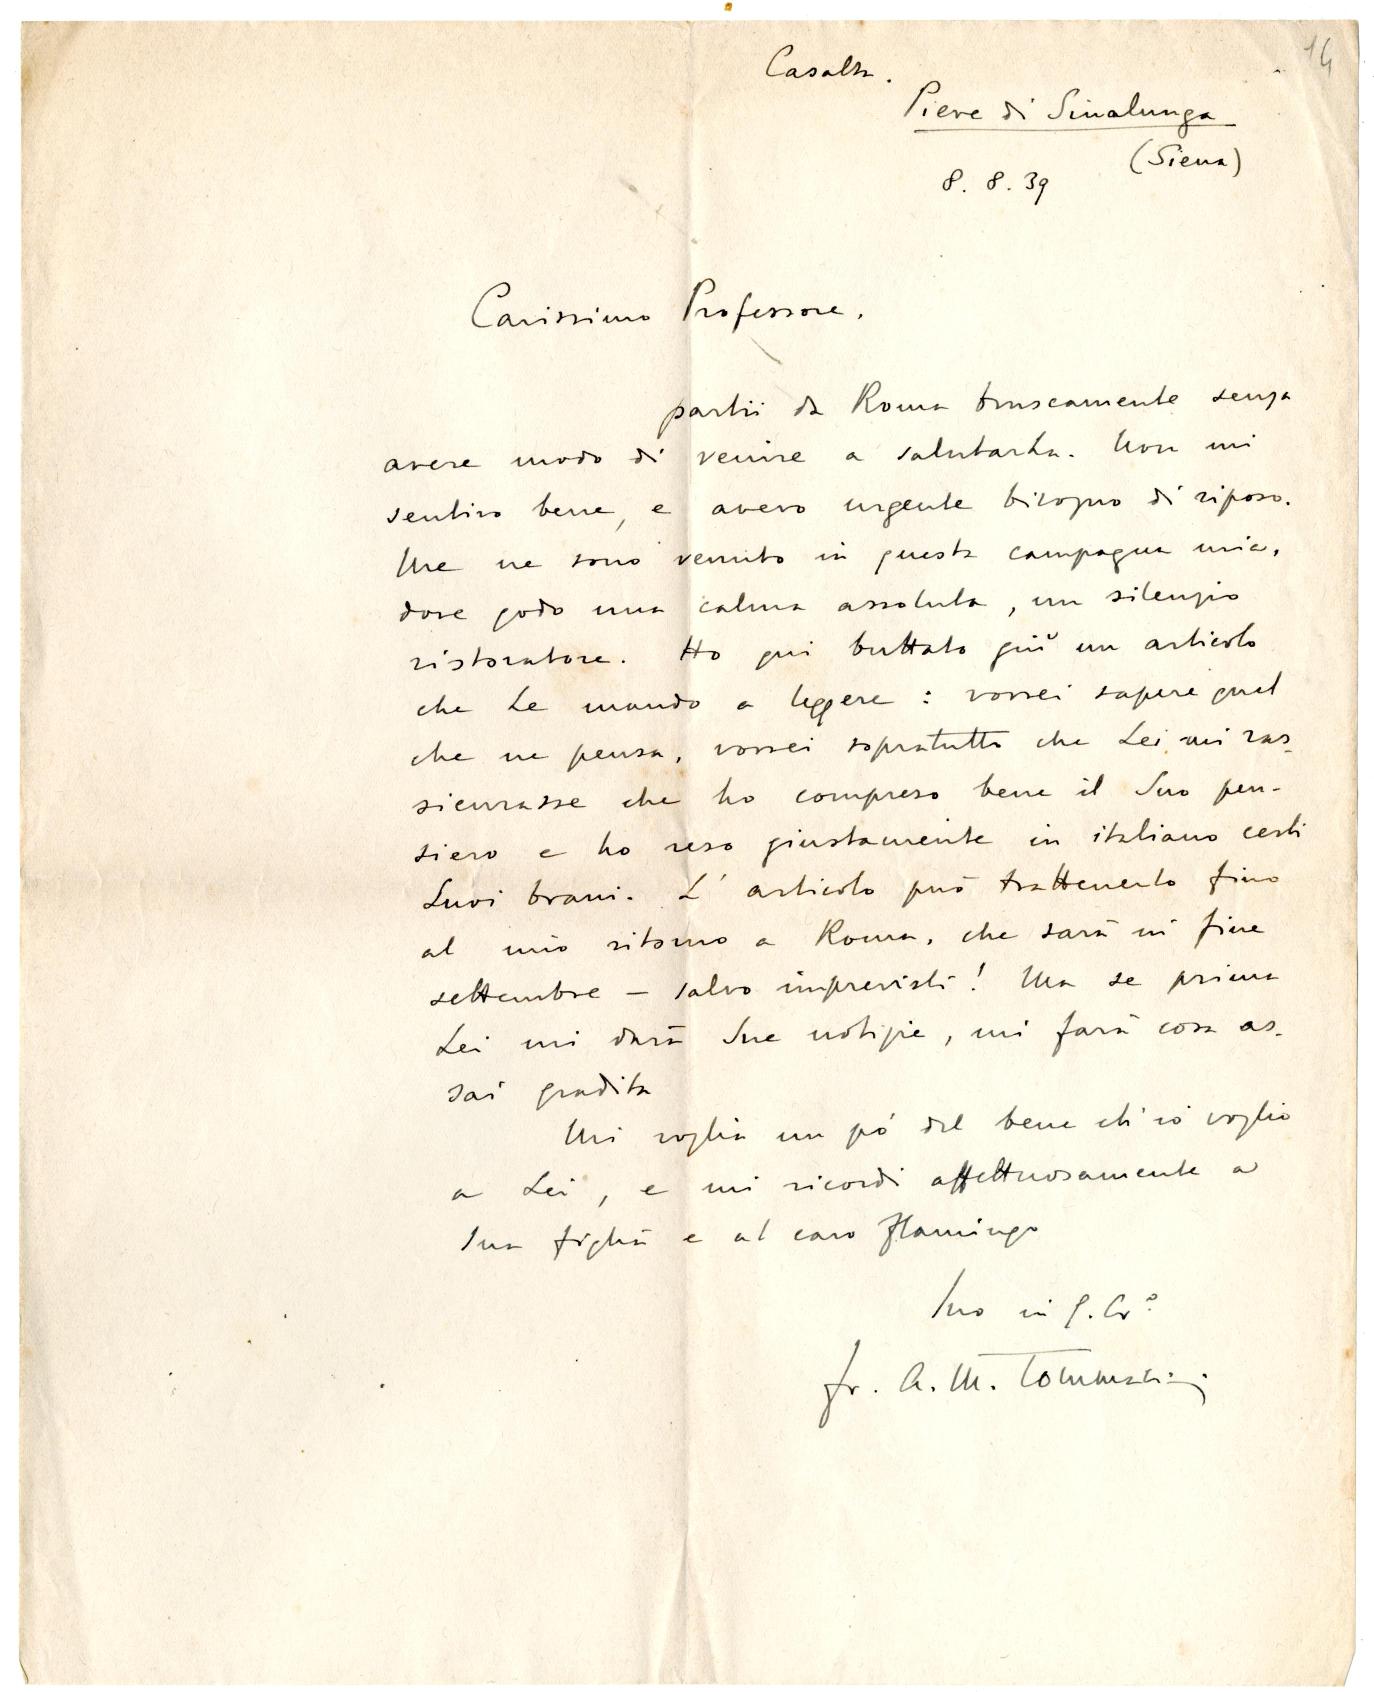 14
Casalta.
Pieve di Sinalunga
(Siena)
8. 8. 39
Carissimo Professore,
partii da Roma bruscamente senza
avere modo di venire a salutarLa. Non mi
sentivo bene, e avevo urgente bisogno di riposo.
Me ne sono venuto in questa campagna mia,
dove godo una calma assoluta, un silenzio
ristoratore. Ho qui buttato giù un articolo
che Le mando a leggere: vorrei sapere quel
che ne pensa, vorrei sopratutto che Lei mi ras-
sicurasse che ho compreso bene il Suo pen-
siero e ho reso giustamente in italiano certi
Suoi brani. L'articolo può trattenerlo fino
al mio ritorno a Roma, che sarà in fine
settembre – salvo imprevisti! Ma se prima
Lei mi darà Sue notizie, mi farà cosa as-
sai gradita
Mi voglia un pó del bene ch'io voglio
a Lei, e mi ricordi affettuosamente a
Sua figlia e al caro Flamingo
Suo in G. Cr.º
fr. A. M. Tommasini